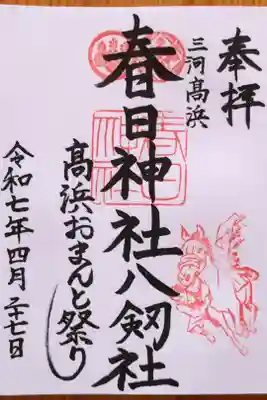 奉拝
三河髙浜
春日神社八剱社
髙浜おまんと祭り
令和七年四月二十七日